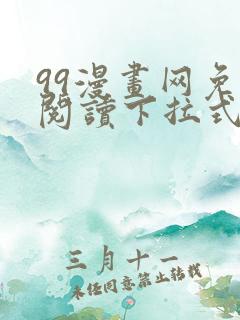 99漫畫网免
閱讀下拉式
三月十一
未经同意禁止转载